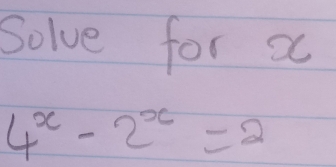 Solve for x
4^x - 2^x = 2